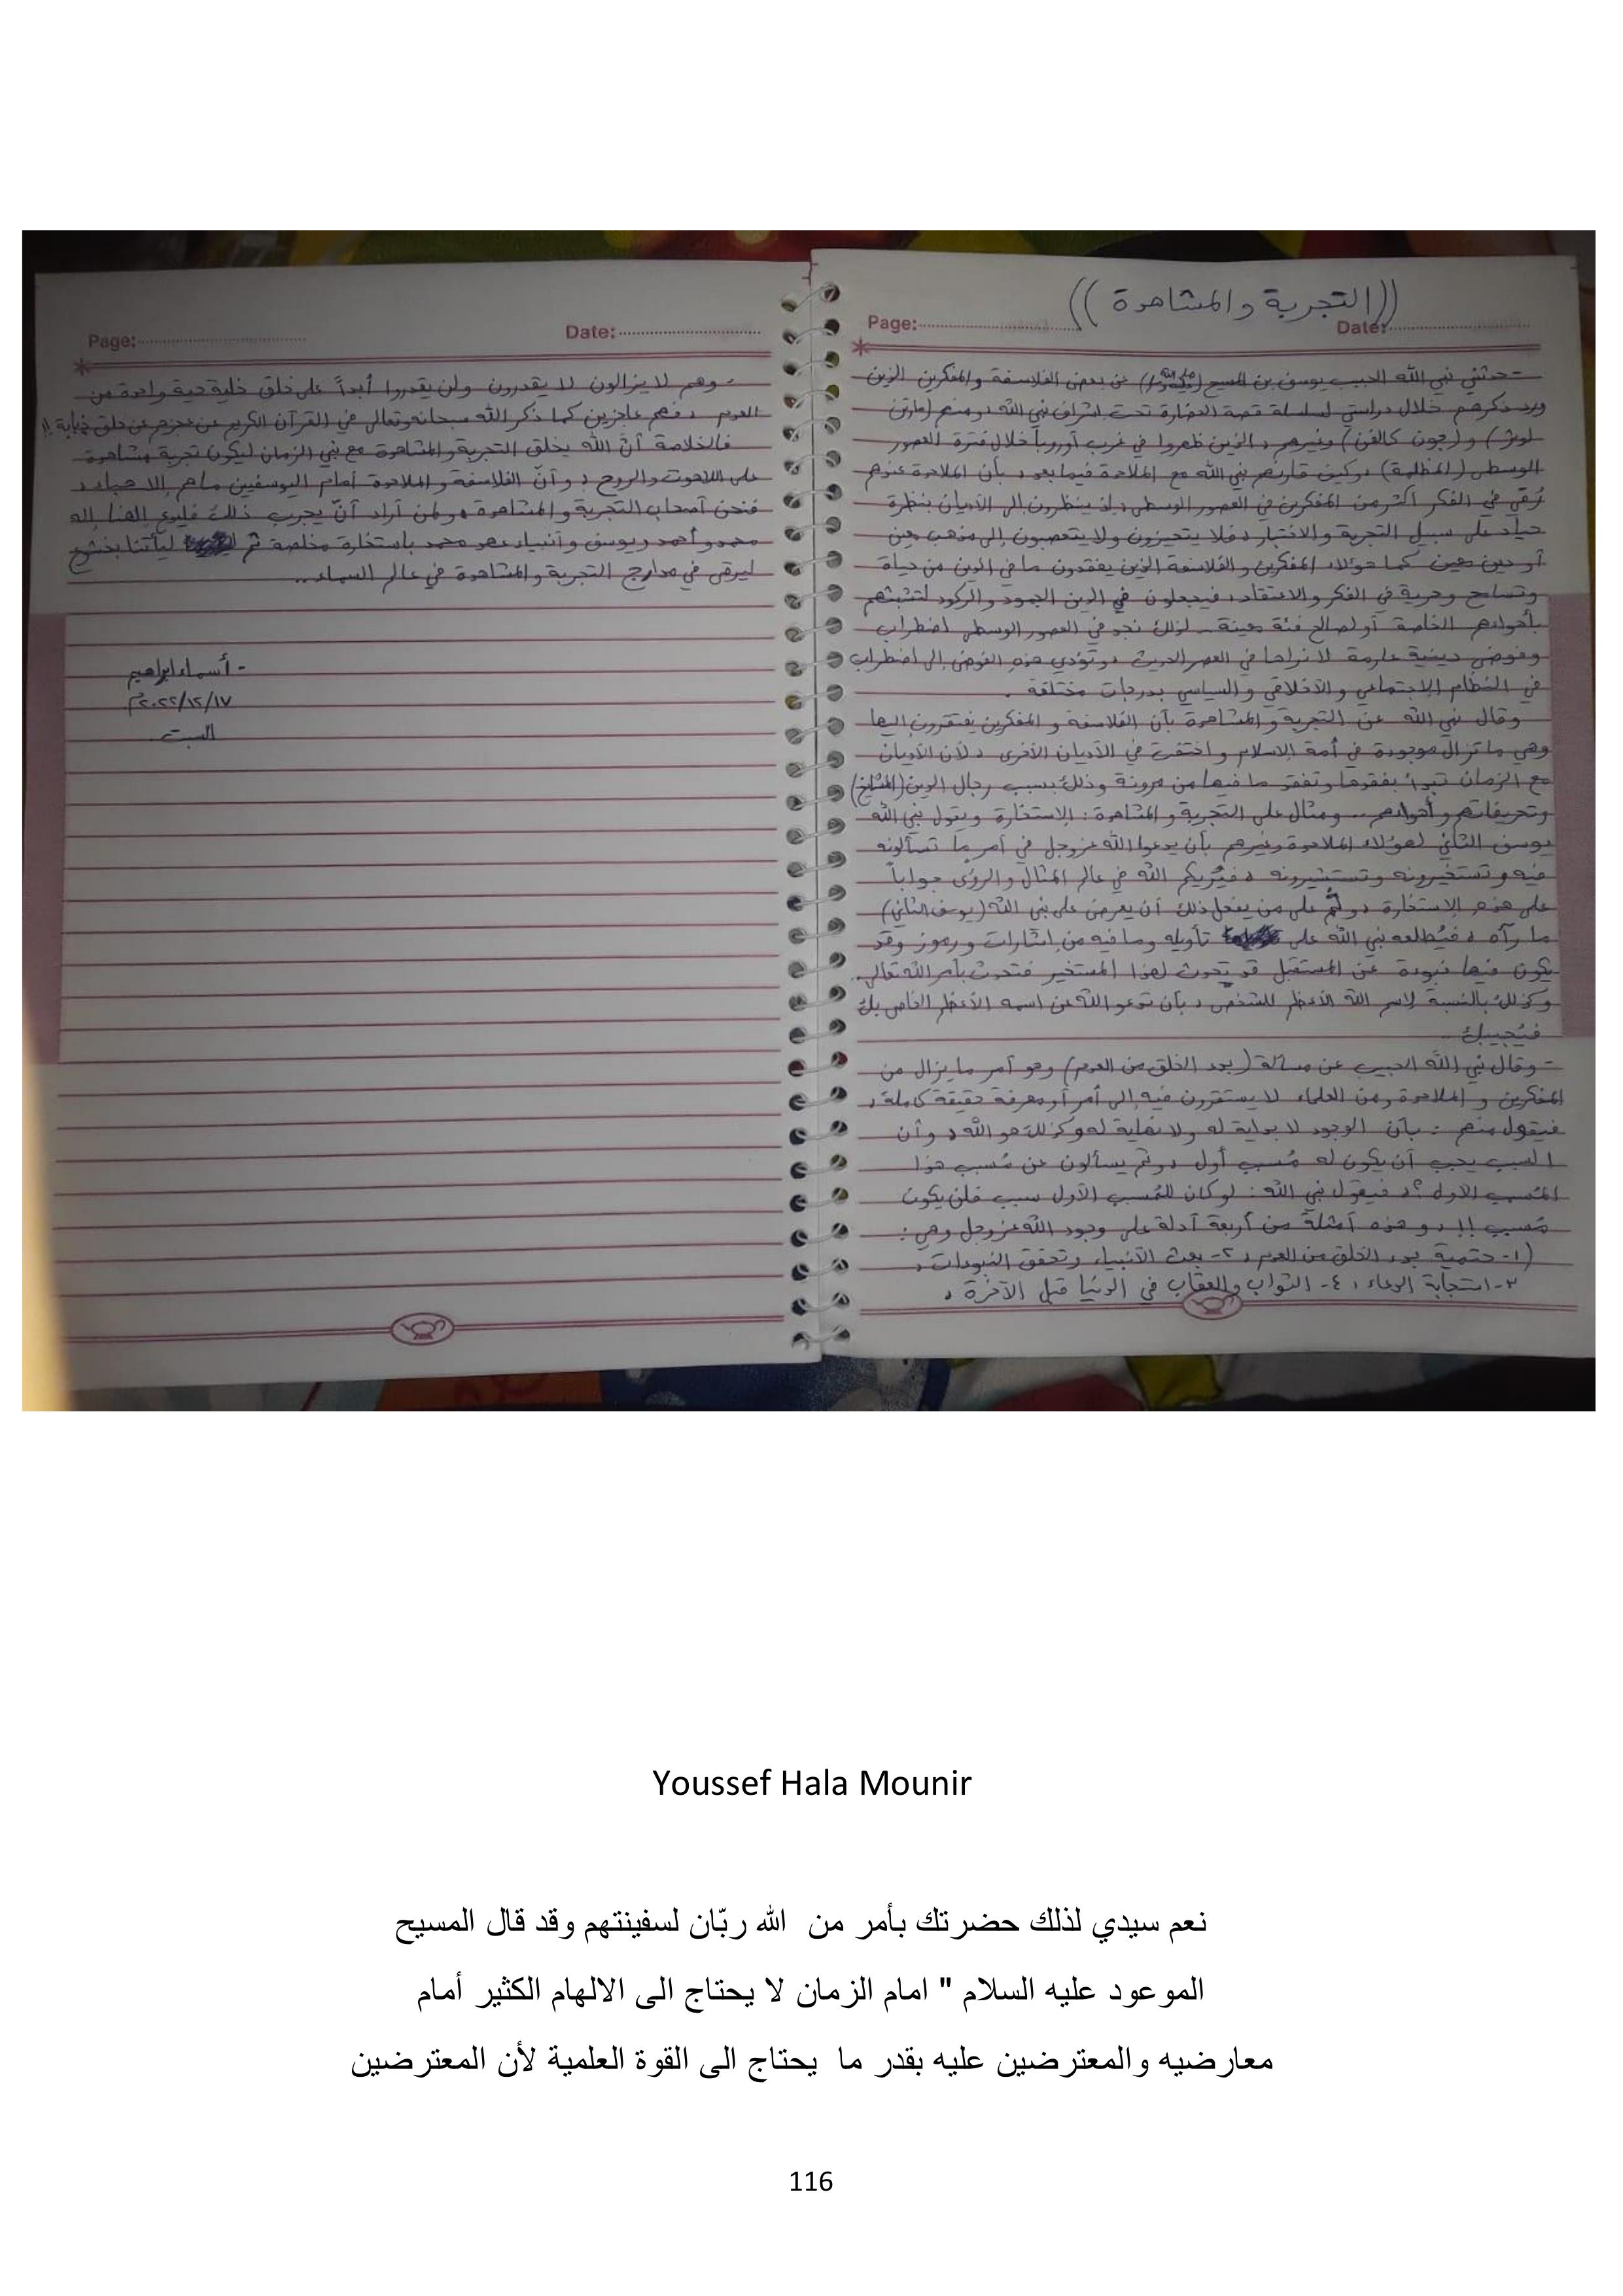 ((التجربة والمشاهدة))
Page: Date:
- حدثني نبي الله الحبيب يوسف بن المسيح عن بعض الفلاسفة والمفكرين الذين
ورد ذكرهم خلال دراستي لسلسلة قصة الحضارة تحت إشراف نبي الله ، ومنهم (مارتن
لوثر) و (جون كالفن) وغيرهم ، الذين ظهروا في غرب أوروبا خلال فترة العصور
الوسطى (المظلمة) ، وكيف قارنهم نبي الله مع الملاحدة فيما بعد ، بأن الملاحدة عندهم
رُقي في الفكر أكثر من المفكرين في العصور الوسطى ، إذ ينظرون إلى الأديان بنظرة
حياد على سبيل التجربة والاختبار ، فلا يتحيزون ولا يتعصبون إلى مذهب معين
أو دين معين كما هؤلاء المفكرين والفلاسفة الذين يفقدون ما في الدين من حياة
وتسامح وحرية في الفكر والاعتقاد ، فيجعلون في الدين الجمود والركود لتشبثهم
بأهوائهم الخاصة أو لصالح فئة معينة . لذلك نجد في العصور الوسطى اضطراب
وفوضى دينية عارمة لا نراها في العصر الحديث ، وتؤدي هذه الفوضى إلى اضطراب
في النظام الاجتماعي والأخلاقي والسياسي بدرجات مختلفة .
وقال نبي الله عن التجربة والمشاهدة بأن الفلاسفة والمفكرين يفتقرون إليها
وهي ما تزال موجودة في أمة الإسلام واختفت في الأديان الأخرى ، لأن الأديان
مع الزمان تبدأ بفقدها وتفقد ما فيها من مرونة وذلك بسبب رجال الدين (المشايخ)
وتحريفاتهم وأهوائهم .. ومثال على التجربة والمشاهدة : الإستخارة ويقول نبي الله
يوسف الثاني لهؤلاء الملاحدة وغيرهم بأن يدعوا الله عز وجل في أمر ما تسألونه
فيه وتستخيرونه وتستشيرونه ، فيُريكم الله في عالم المثال والرؤى جواباً
على هذه الإستخارة ، و ثم على من يفعل ذلك أن يعرض على نبي الله (يوسف الثاني)
ما رآه ، فيُطلعه نبي الله على تأويله وما فيه من إشارات ورموز وقد
يكون فيها نبوءة عن المستقبل قد تحدث لهذا المستخير فتحدث بأمر الله تعالى .
وكذلك بالنسبة لإسم الله الأعظم للشخص ، بأن تدعو الله عن اسمه الأعظم الخاص بك
فيُجيبك ..
- وقال نبي الله الحبيب عن مسألة (بدء الخلق من العدم) وهو أمر ما يزال من
المفكرين و الملاحدة ومن العلماء لا يستقرون فيه إلى أمر أو معرفة حقيقة كاملة ،
فيقول منهم : بأن الوجود لا بداية له ولا نهاية له وكذلك هو الله ، وأن
السبب يجب أن يكون له مُسبب أول ، و ثم يسألون عن مُسبب هذا
المُسبب الأول ؟، فيقول نبي الله : لو كان للمُسبب الأول سبب فلن يكون
مُسبب !! ، و هذه أمثلة من أربعة أدلة على وجود الله عز وجل وهي :
(١- حتمية بدء الخلق من العدم ، ٢- بعث الأنبياء وتحقق النبوءات ،
٣- استجابة الدعاء ، ٤- الثواب والعقاب في الدنيا قبل الآخرة ،
Page: Date:
- وهم لا يزالون لا يقدرون ولن يقدروا أبداً على خلق خلية حية واحدة من
العدم ، فهم عاجزين كما ذكر الله سبحانه وتعالى في القرآن الكريم عن عجزهم عن خلق ذبابة !!
فالخلاصة أنّ الله يخلق التجربة والمشاهدة مع نبي الزمان ليكون تجربة مشاهدة
على اللاهوت والروح ، و أنّ الفلاسفة والملاحدة أمام اليوسفيين ماهم إلا هباء ،
فنحن أصحاب التجربة والمشاهدة ، ولمن أراد أنّ يجرب ذلك فليدع إلهنا إله
محمد و أحمد ويوسف وأنبياء عهد محمد باستخارة مخلصة ثم ليأتنا بخشوع
ليرقى في مدارج التجربة والمشاهدة في عالم السماء ..
- أسماء إبراهيم
٢٠٢٢/١٢/١٧م
السبت .
Youssef Hala Mounir
نعم سيدي لذلك حضرتك بأمر من الله ربّان لسفينتهم وقد قال المسيح
الموعود عليه السلام " امام الزمان لا يحتاج الى الالهام الكثير أمام
معارضيه والمعترضين عليه بقدر ما يحتاج الى القوة العلمية لأن المعترضين
116